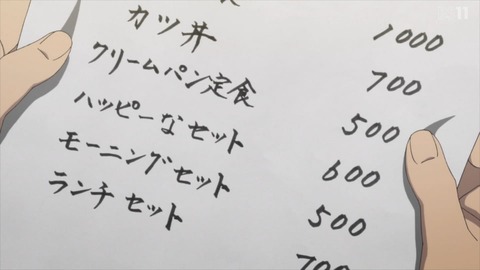 1000
カツ丼 700
クリームパン定食 500
ハッピーなセット 600
モーニングセット 500
ランチセット 700
11